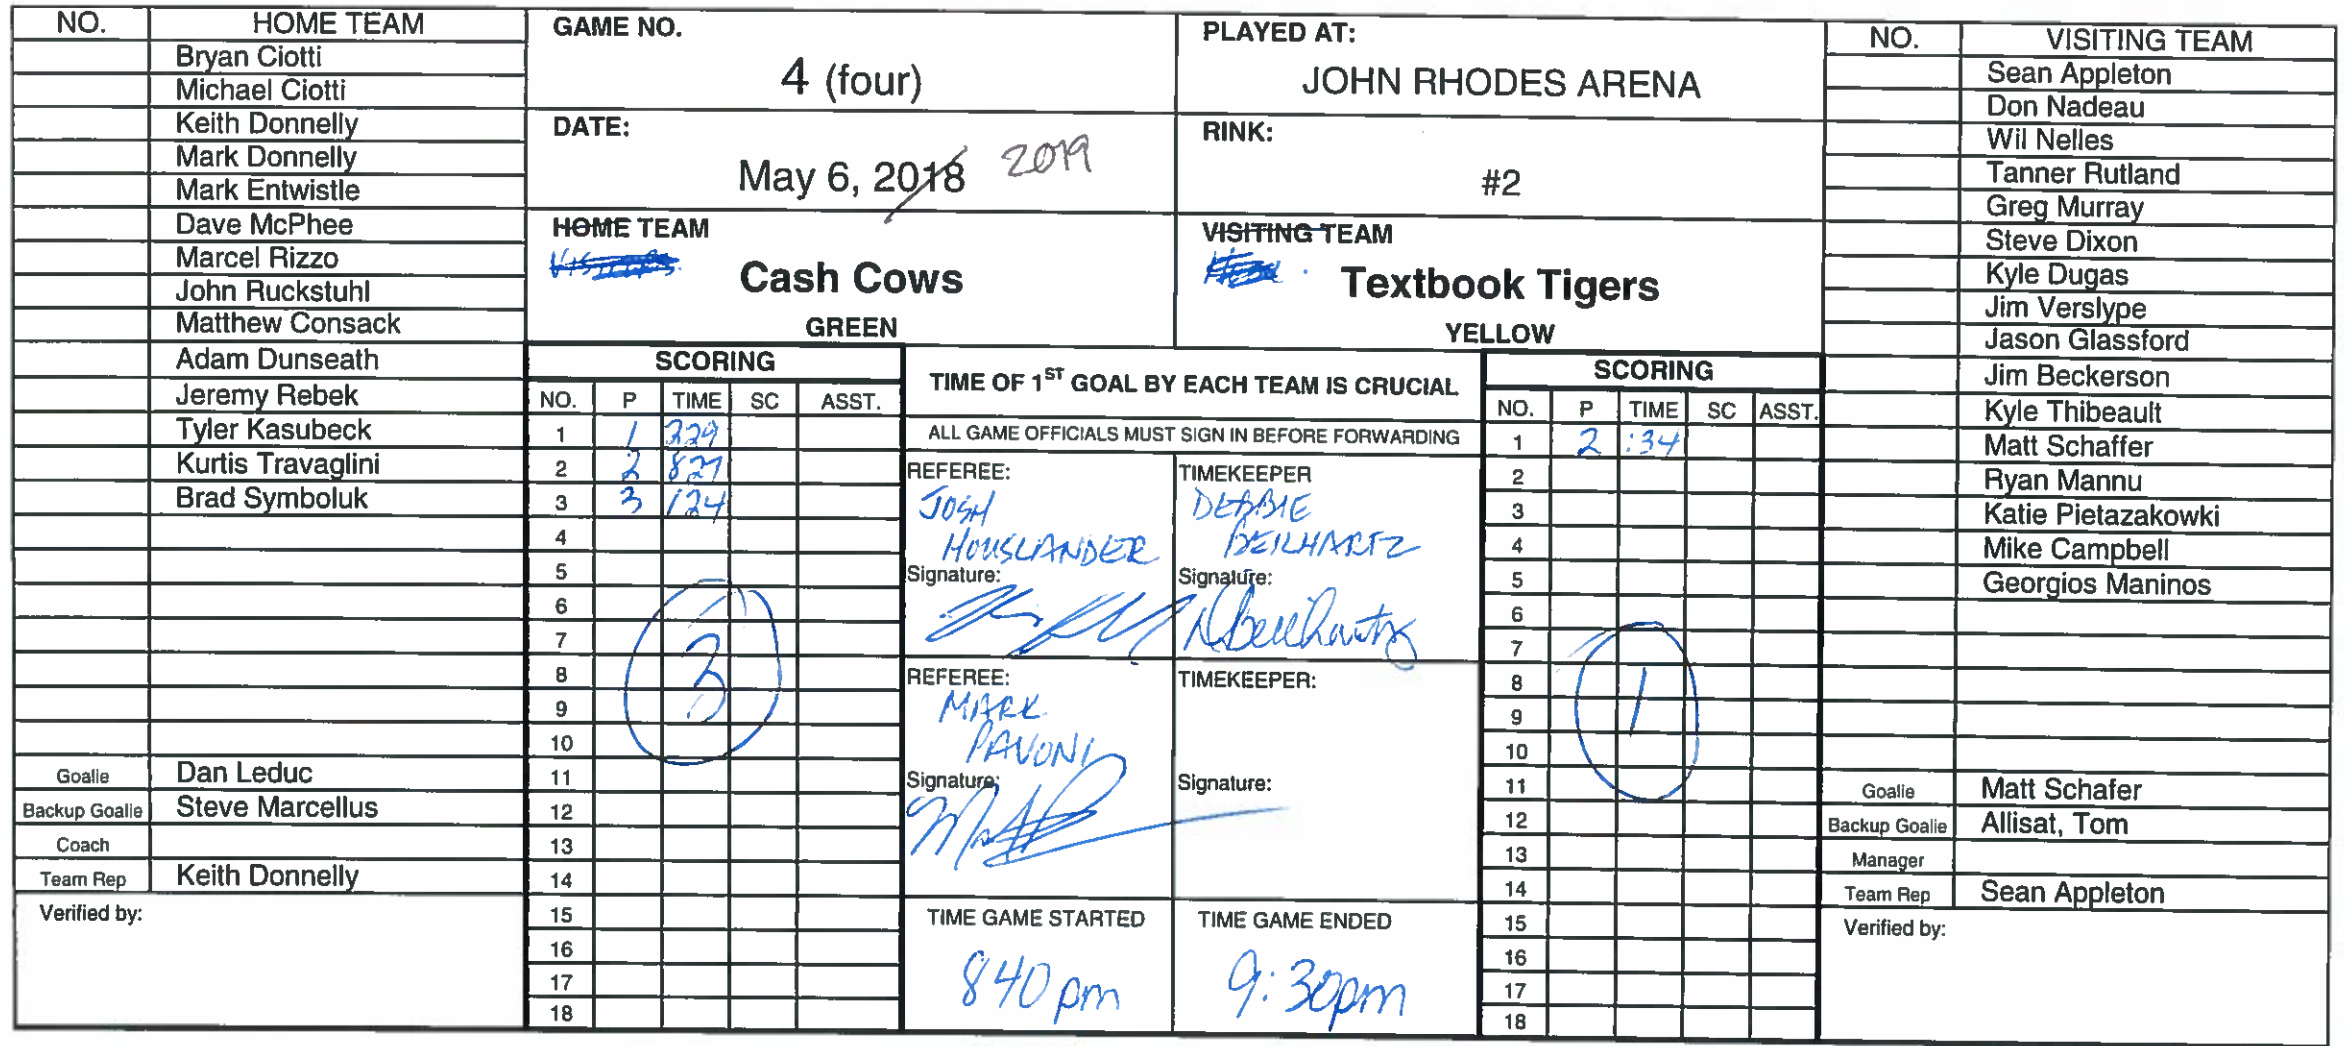 NO. HOME TEAM
Bryan Ciotti
Michael Ciotti
Keith Donnelly
Mark Donnelly
Mark Entwistle
Dave McPhee
Marcel Rizzo
John Ruckstuhl
Matthew Consack
Adam Dunseath
Jeremy Rebek
Tyler Kasubeck
Kurtis Travaglini
Brad Symboluk
Goalie Dan Leduc
Backup Goalie Steve Marcellus
Coach
Team Rep Keith Donnelly
Verified by:
GAME NO.
4 (four)
DATE:
May 6, 2018 2019
HOME TEAM
Cash Cows
GREEN
PLAYED AT:
JOHN RHODES ARENA
RINK:
#2
VISITING TEAM
Textbook Tigers
YELLOW
SCORING
NO. P TIME SC ASST.
1 1 329
2 2 827
3 3 124
4
5
6
7
8
9
10
11
12
13
14
15
16
17
18
3
TIME OF 1ST GOAL BY EACH TEAM IS CRUCIAL
ALL GAME OFFICIALS MUST SIGN IN BEFORE FORWARDING
REFEREE:
JOSH
HOUSLANDER
Signature:
TIMEKEEPER
DEBBIE
BEILHARTZ
Signature:
DBeilhartz
REFEREE:
MARK
PAVONI
Signature:
TIMEKEEPER:
Signature:
TIME GAME STARTED
840 pm
TIME GAME ENDED
9:30pm
SCORING
NO. P TIME SC ASST.
1 2 :34
2
3
4
5
6
7
8
9
10
11
12
13
14
15
16
17
18
1
NO. VISITING TEAM
Sean Appleton
Don Nadeau
Wil Nelles
Tanner Rutland
Greg Murray
Steve Dixon
Kyle Dugas
Jim Verslype
Jason Glassford
Jim Beckerson
Kyle Thibeault
Matt Schaffer
Ryan Mannu
Katie Pietazakowki
Mike Campbell
Georgios Maninos
Goalie Matt Schafer
Backup Goalie Allisat, Tom
Manager
Team Rep Sean Appleton
Verified by: